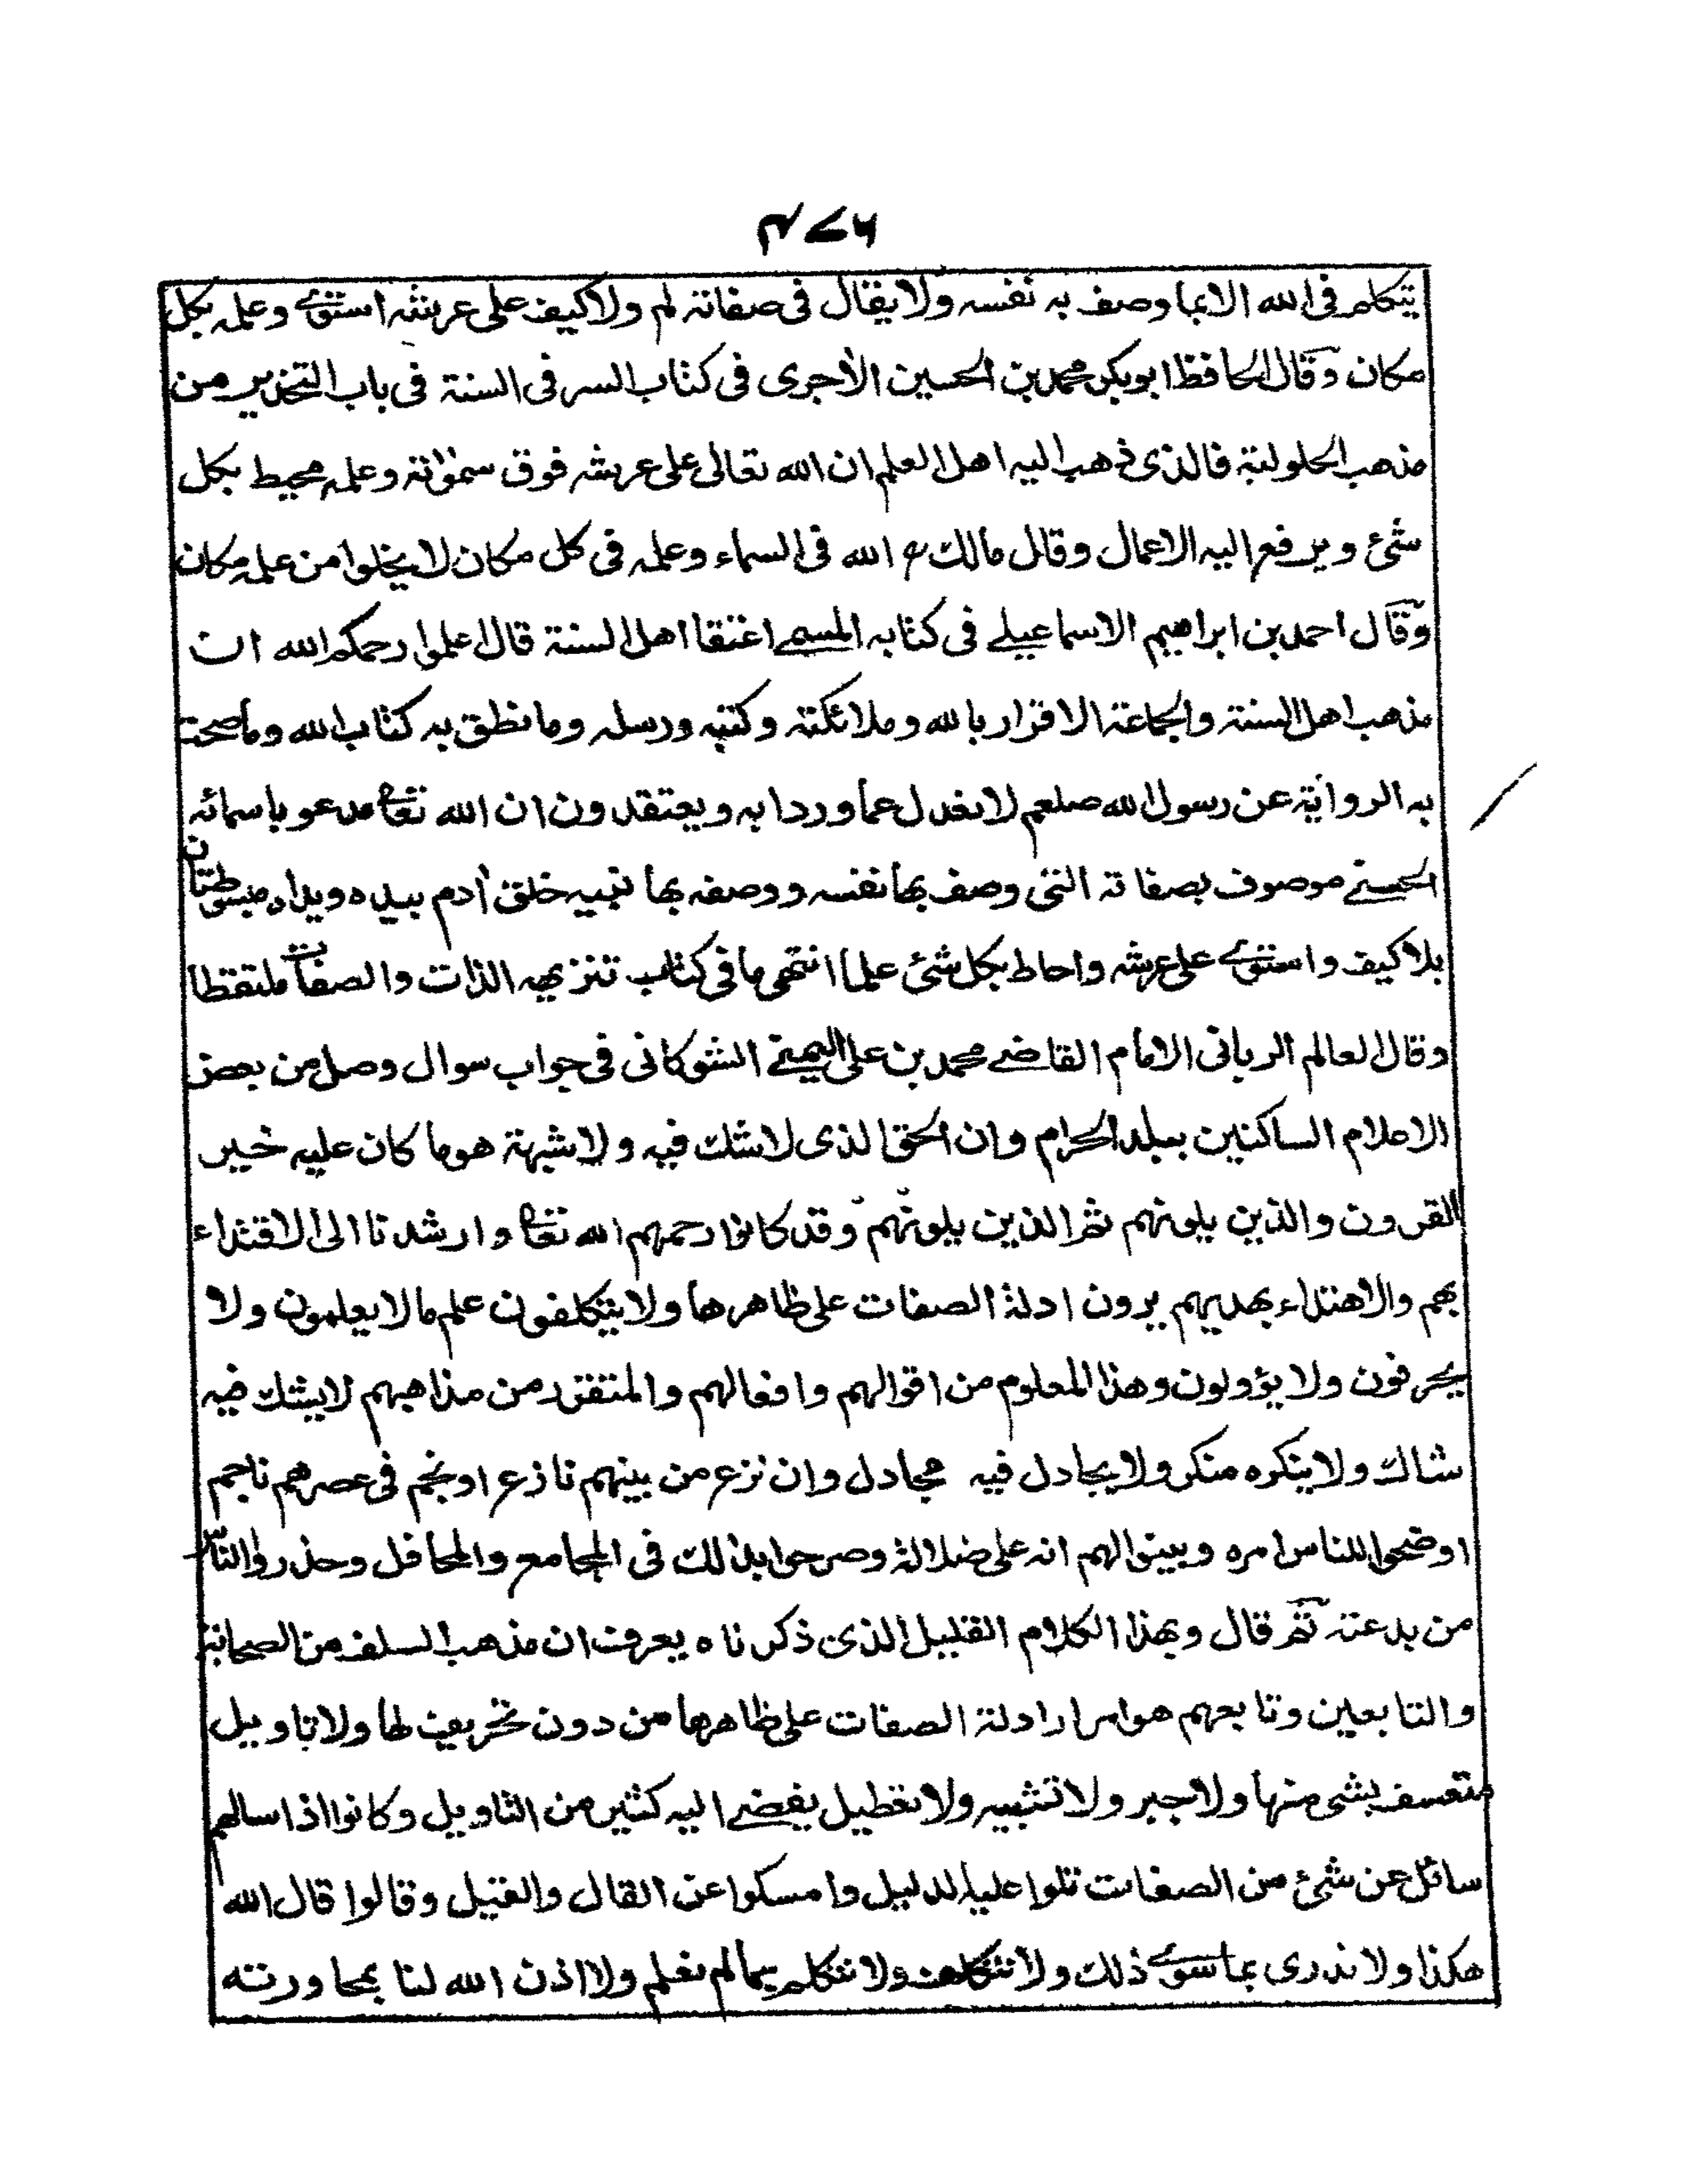 ۴۷۶
يتكلم فى الله الا بما وصف به نفسه ولا يقال فى صفاته لم ولا كيف على عرشه استوى وعلمه بكل
مكان وقال الحافظ ابوبكر محمد بن الحسين الاٰجرى فى كتاب السر فى السنة فى باب التحذير من
مذهب الحلولية فالذى ذهب اليه اهل العلم ان الله تعالى على عرشه فوق سمٰواته وعلمه محيط بكل
شئ ويرفع اليه الاعمال وقال مالك رح الله فى السماء وعلمه فى كل مكان لا يخلوا من علمه مكان
وقال احمد بن ابراهيم الاسماعيلے فى كتابه المسمے اعتقاا اهل السنة قال اعلموا رحمكم الله ان
مذهب اهل السنة والجماعة الاقرار بالله وملائكته وكتبه ورسله وما نطق به كتاب الله وما صحت
به الرواية عن رسول الله صلعم لا نعدل عما وردا به ويعتقدون ان الله تعالى مدعو باسمائه
الحسنے موصوف بصفاته التى وصف بها نفسه ووصفه بها نبيه خلق اٰدم بيده ويداه مبسوطتان
بلا كيف واستوى على عرشه واحاط بكل شئ علما انتهى ما فى كتاب تنزيه الذات والصفات ملتقطا
وقال العالم الربانى الامام القاضے محمد بن على اليمنے الشوكانى فى جواب سوال وصل من بعض
الاعلام الساكنين ببلد الحرام وان الحق الذى لا شك فيه ولا شبهة هو ما كان عليه خير
القرون والذين يلونهم ثم الذين يلونهم وقد كانوا رحمهم الله تعالى وارشدنا الى الاقتداء
بهم والاهتداء بهديهم يرون ادلة الصفات على ظاهرها ولا يتكلفون علم ما لا يعلمون ولا
يحرفون ولا يؤولون وهذا المعلوم من اقوالهم وافعالهم والمتقرر من مذاهبهم لا يشك فيه
شاك ولا ينكره منكر ولا يجادل فيه مجادل وان نزع من بينهم نازع او نجم فى عصرهم ناجم
اوضحوا للناس امره وبينوا لهم انه على ضلالة وصرحوا بذالك فى المجامع والمحافل وحذروا الناس
من بدعته ثم قال وبهذا الكلام القليل الذى ذكرناه يعرف ان مذهب السلف من الصحابة
والتابعين وتابعيهم هو امرار ادلة الصفات على ظاهرها من دون تحريف لها ولا تاويل
متعسف بشى منها ولا جبر ولا تشبيه ولا تعطيل يفضے اليه كثير من التاويل وكانوا اذا سالهم
سائل عن شئ من الصفات تلوا عليه الدليل وامسكوا عن القال والقيل وقالوا قال الله
هكذا ولا ندرى بما سوى ذلك ولا نتكلف ولا نتكلم بما لم نعلم ولا اذن الله لنا بمجاورته